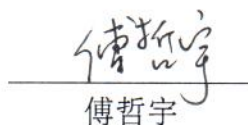 傅哲宇
傅哲宇